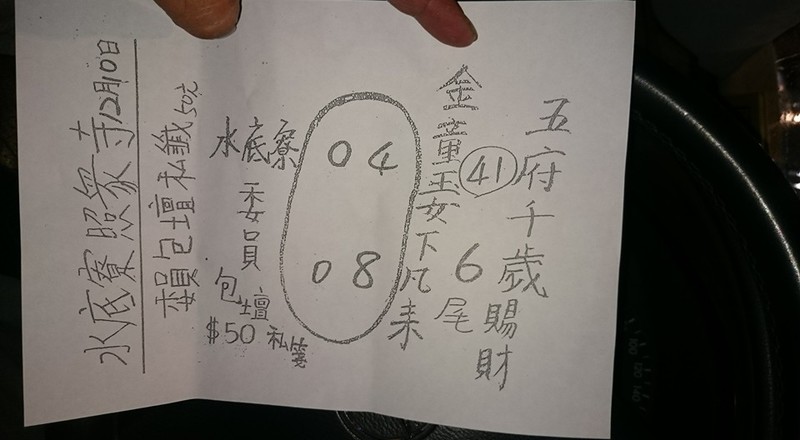 五府千歲賜財
41
6尾
金童玉女下凡来
04
08
水底寮
委員
包壇
$50私箋
委員包壇私籤50元
水底寮照眾寺12月10日